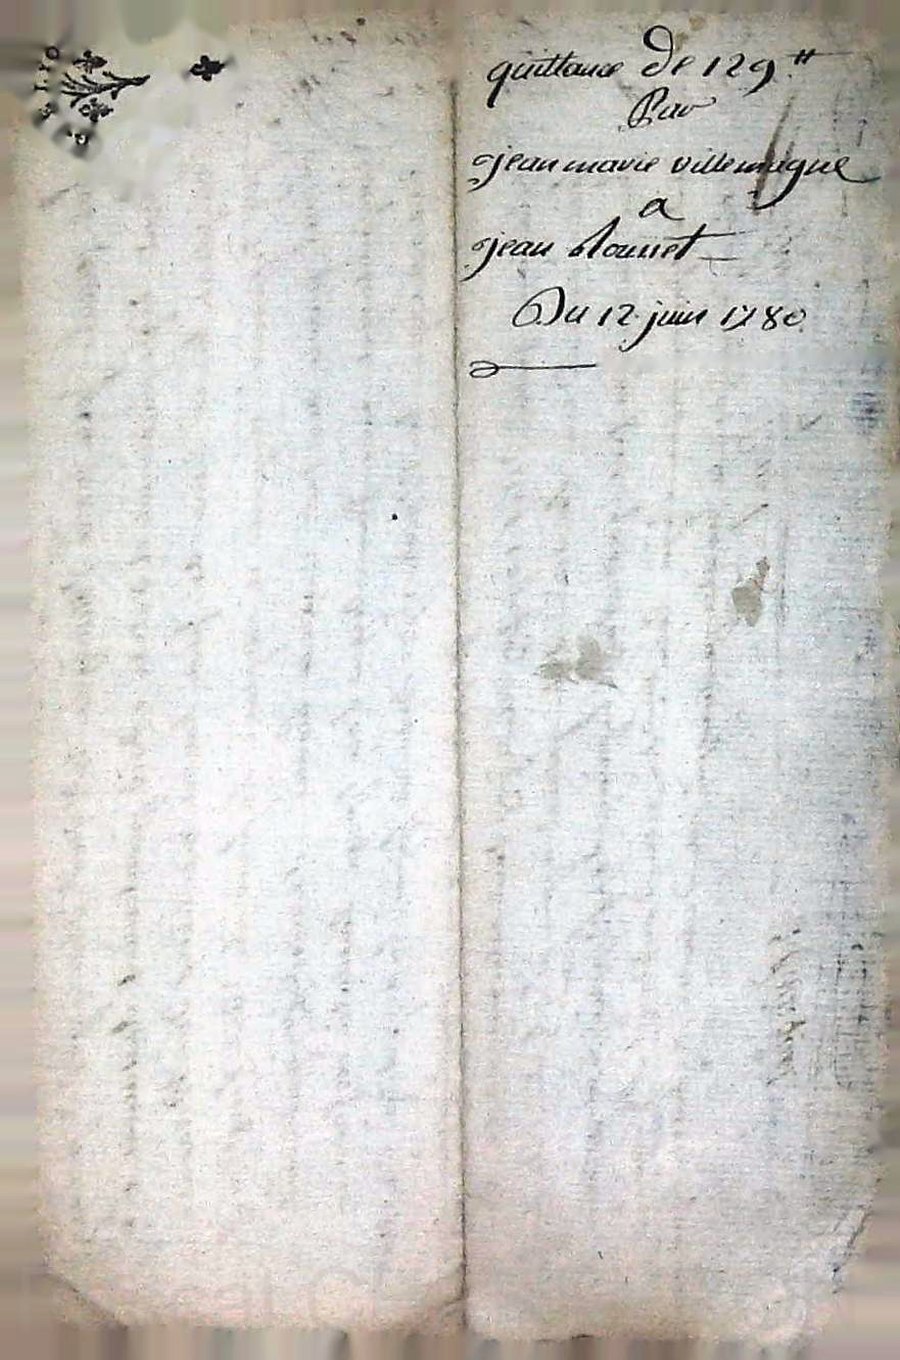 quittance De 129 ₶
Par
jean marie villemagne
a
jean
Du 12 juin 1780